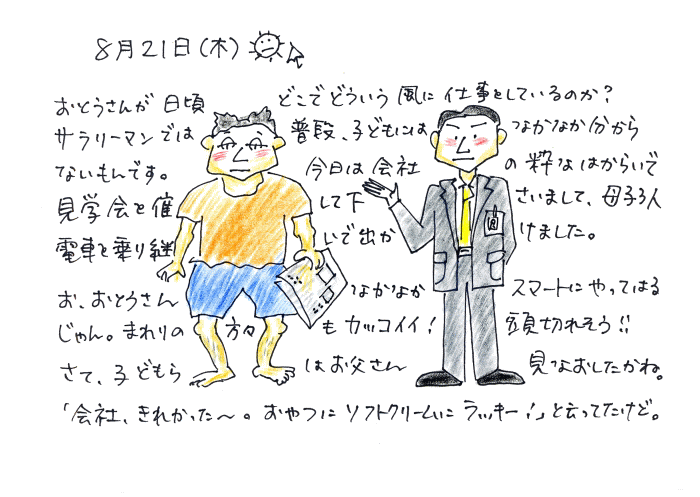 8月21日(木)
おとうさんが日頃どこでどういう風に仕事をしているのか?
サラリーマンでは普段、子どもにはなかなか分から
ないもんです。今日は会社の粋なはからいで
見学会を催して下さいまして、母子3人
電車を乗り継いで出かけました。
お、おとうさんなかなかスマートにやってはる
じゃん。まわりの方々もカッコイイ!頭切れそう!!
さて、子どもらはお父さん見なおしたかね。
「会社、きれかった〜。おやつにソフトクリームにラッキー!」と云ってたけど。